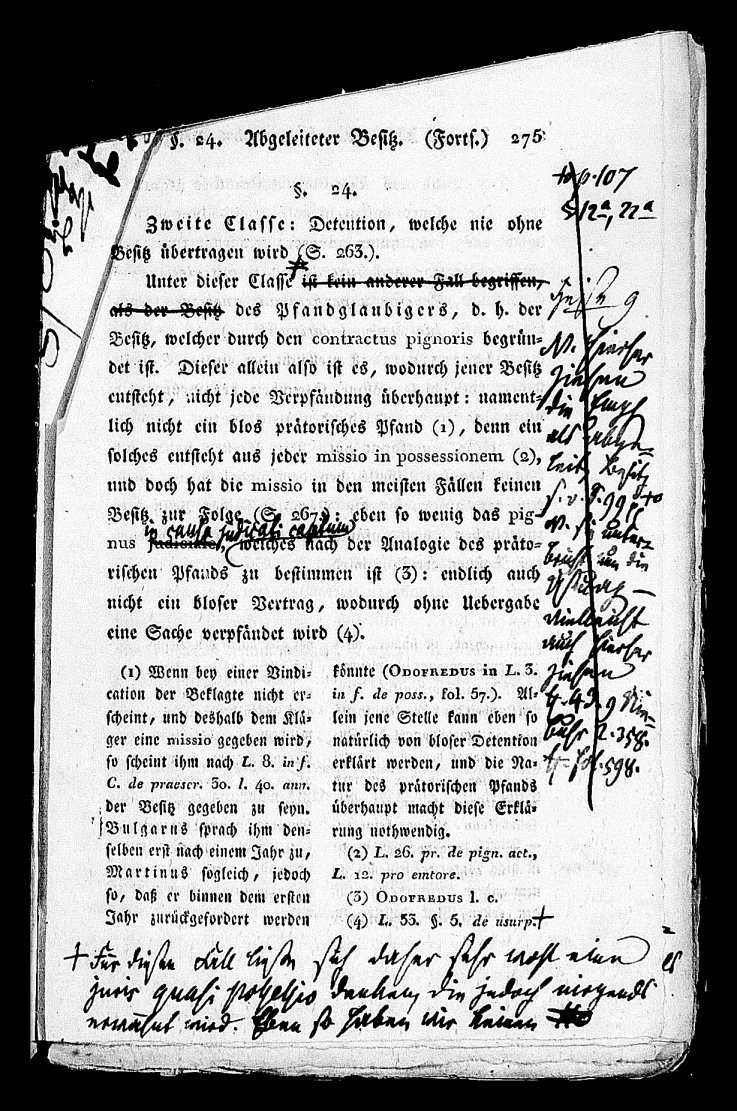 §. 24. Abgeleiteter Besitz. (Forts.) 275
§. 24.
Zweite Classe: Detention, welche nie ohne
Besitz übertragen wird (S. 263.).
Unter dieser Classe ist kein anderer Fall begriffen,
als der Besitz des Pfandglaubigers, d. h. der
Besitz, welcher durch den contractus pignoris begrün-
det ist. Dieser allein also ist es, wodurch jener Besitz
entsteht, nicht jede Verpfändung überhaupt: nament-
lich nicht ein blos prätorisches Pfand (1), denn ein
solches entsteht aus jeder missio in possessionem (2),
und doch hat die missio in den meisten Fällen keinen
Besitz zur Folge (S. 267.): eben so wenig das pig-
in causa judicati captum
nus judiciale, welches nach der Analogie des präto-
rischen Pfands zu bestimmen ist (3): endlich auch
nicht ein bloser Vertrag, wodurch ohne Uebergabe
eine Sache verpfändet wird (4).
(1) Wenn bey einer Vindi-
cation der Beklagte nicht er-
scheint, und deshalb dem Klä-
ger eine missio gegeben wird,
so scheint ihm nach L. 8. in f.
C. de praescr. 30. l. 40. ann.
der Besitz gegeben zu seyn.
Bulgarus sprach ihm den-
selben erst nach einem Jahr zu,
Martinus sogleich, jedoch
so, daß er binnen dem ersten
Jahr zurückgefordert werden
könnte (ODOFREDUS in L. 3.
in f. de poss., fol. 57.). Al-
lein jene Stelle kann eben so
natürlich von bloser Detention
erklärt werden, und die Na-
tur des prätorischen Pfands
überhaupt macht diese Erklä-
rung nothwendig.
(2) L. 26. pr. de pign. act.,
L. 12. pro emtore.
(3) ODOFREDUS l. c.
(4) L. 53. §. 5. de usurp.
p. 107
12a, 22a
hierher
ziehen
die
als
Besitz
vielleicht
auch hierher
ziehen
2. 358.
fol. 598.
Für diesen Fall ließe sich daher sehr wohl eine
juris quasi possessio denken, die jedoch nirgends
erwähnt wird. Eben so haben wir keinen